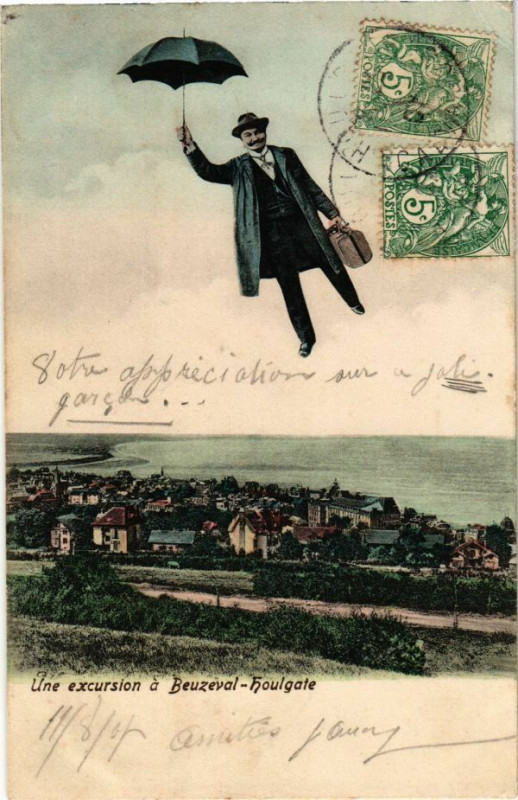 5c
POSTES
5c
POSTES
Votre appréciation sur ce joli
garçon...
Une excursion à Beuzeval-Houlgate
11/8/07 amitiés